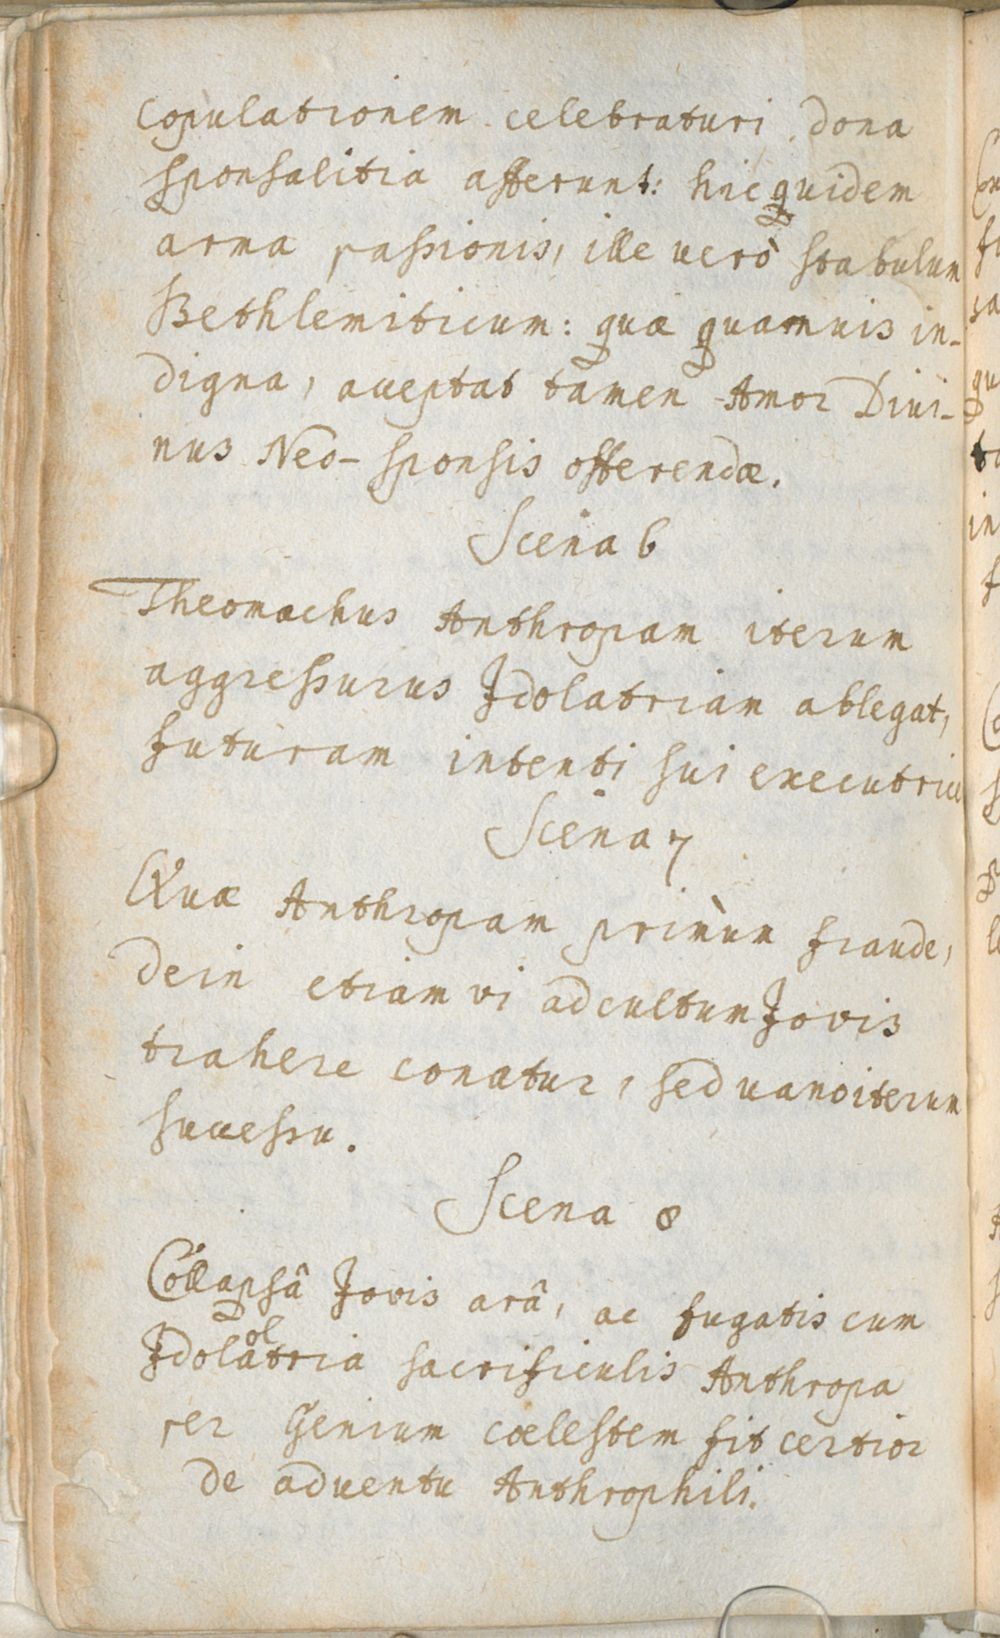 Copulationem celebraturi dona
sponsalitia afferunt: hic quidem
arma passionis, ille verò stabulum
Bethlemiticum: quæ quamuis in-
digna, acceptat tamen Amor Diui-
nus Neo-sponsis offerendæ.
Scena 6
Theomachus Anthropam iterum
aggressurus Idolatriam ablegat,
futuram intenti sui executric
Scena 7
Quæ Anthropam primùm fraude,
dein etiam vi ad cultum Jovis
trahere conatur, sed uano iterum
successu.
Scena 8
Collapsâ Jovis arâ, ac fugatis cum
Idololatria sacrificulis Anthropa
per Genium cœlestem fit certior
de adventu Anthrophili.